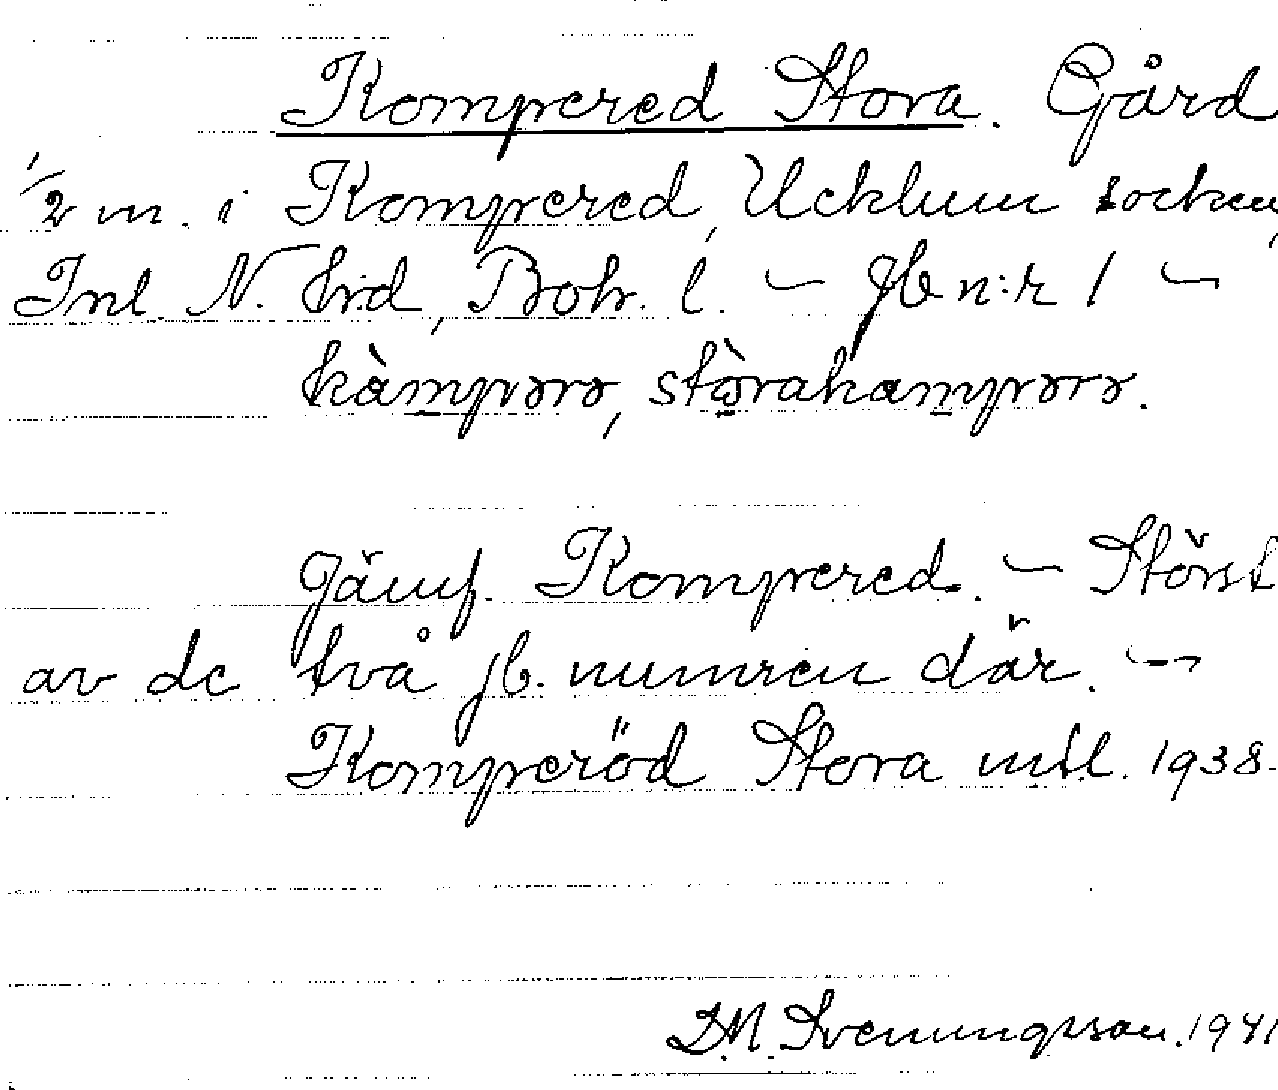 Kompered Stora. Gård
1/2 m. i Kompered, Ucklum socken,
Inl. N. hrd, Boh. l. – Jb n:r 1 –
kàmpərə, stòrakampərə.
Jämf. Kompered. – Störst
av de två jb. numren där. –
Komperöd Stora mtl. 1938.
I.M. Svenungsson. 1941